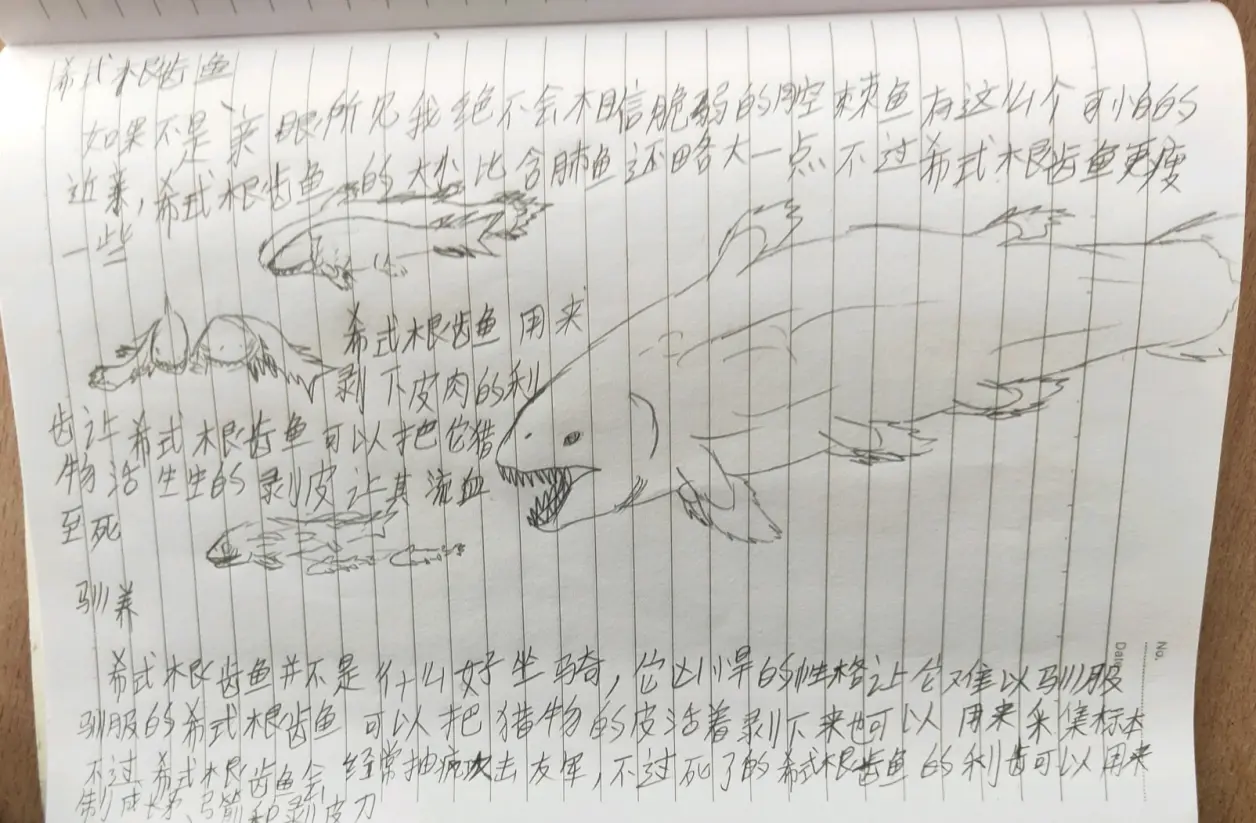 希式根齿鱼
如果不是亲眼所见我绝不会相信脆弱的腔棘鱼有这么个可怕的
近亲,希式根齿鱼的大小比含肺鱼还略大一点不过希式根齿鱼更瘦
一些
希式根齿鱼用来
剥下皮肉的利
齿让希式根齿鱼可以把它猎
物活生生的剥皮让其流血
至死
驯养
希式根齿鱼并不是什么好坐骑,它凶悍的性格让它难以驯服
驯服的希式根齿鱼可以把猎物的皮活着剥下来也可以用来采集标本
不过希式根齿鱼会经常抽疯攻击友军,不过死了的希式根齿鱼的利齿可以用来
制成长矛、弓箭和剥皮刀
No.
Date